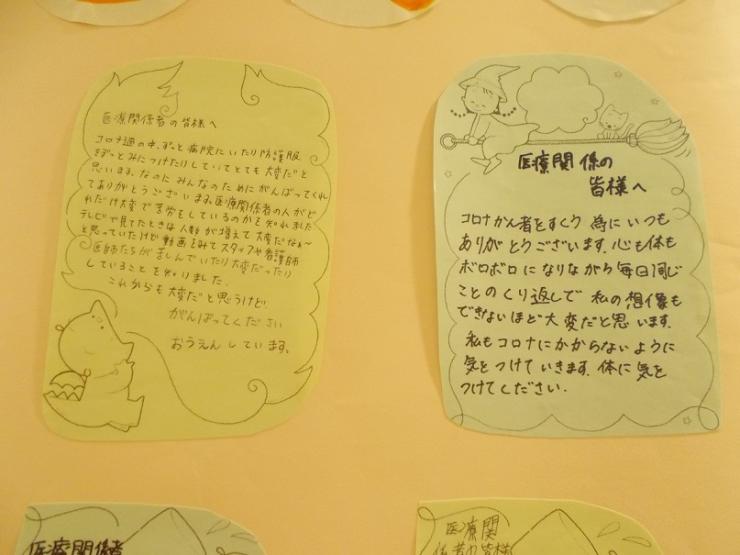 医療関係者の皆様へ
コロナ過の中、ずっと病院にいたり防護服
をずっとみにつけたりしていてとても大変だと
思います。なのにみんなのためにがんばってくれ
てありがとうございます。医療関係者の人がど
れだけ大変で苦労をしているのかを知れました
テレビで見てたときは人数が増えて大変だなぁ〜
と思っていたけど動画をみてスタッフや看護師
医師たちが苦しんでいたり大変だったり
していることを知りました。
これからも大変だと思うけど
がんばってください
おうえんしています。
医療関係の
皆様へ
コロナかん者をすくう為にいつも
ありがとうございます。心も体も
ボロボロになりながら毎日同じ
ことのくり返しで私の想像も
できないほど大変だと思います。
私もコロナにかからないように
気をつけていきます。体に気を
つけてください.
医療関係者
医療関
係者の皆様